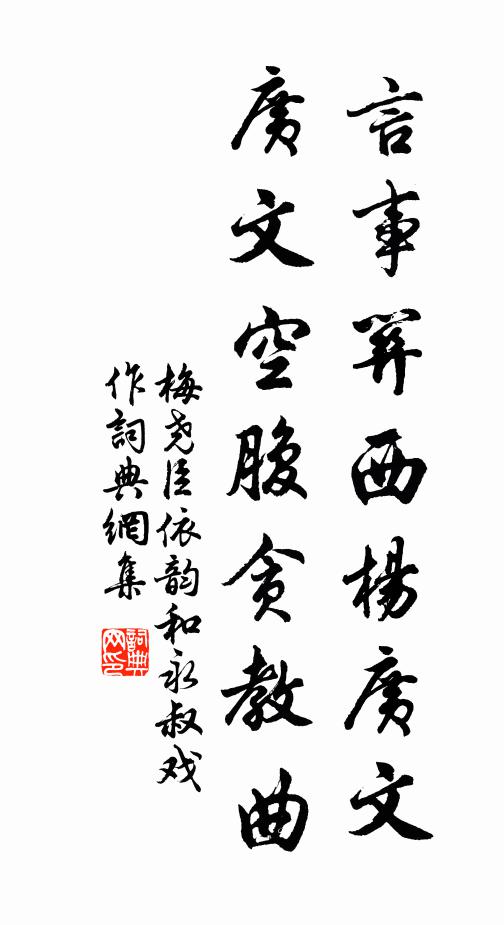 言事關西楊廣文
廣文空腹貪教曲
梅尧臣依韵和永叔戏
作詞典網集
詞典
网印